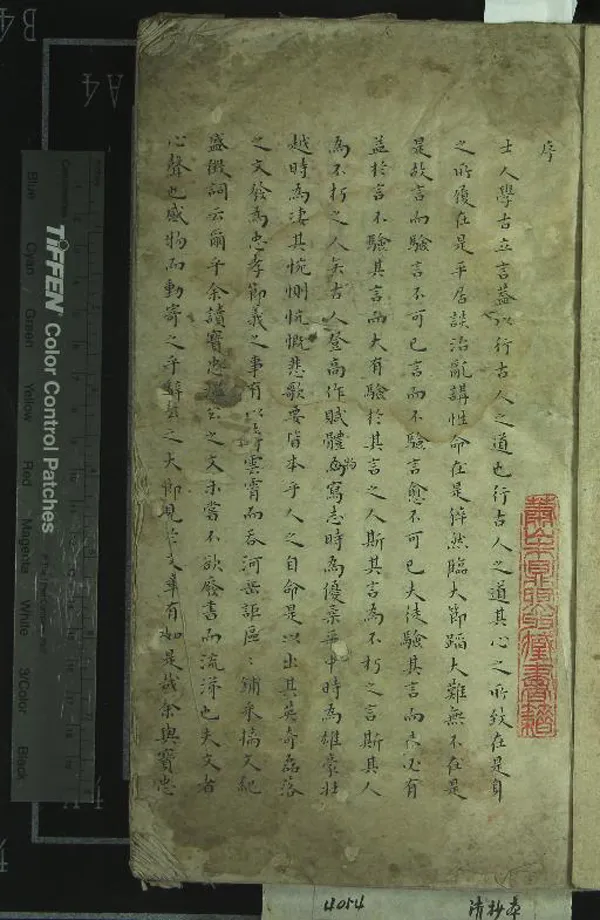 序
士人學古立言蓋以行古人之道也行古人之道其心之所致在是身
之所履在是平居談治亂講性命在是猝然臨大節蹈大難無不在是
是故言而驗言不可已言而不驗言愈不可已夫徒驗其言而未必有
益於言不驗其言而大有驗於其言之人斯其言為不朽之言斯其人
為不朽之人矣古人登高作賦體物寫志時為優柔平中時為雄豪壯
越時為淒其惋惻慷慨悲歌要皆本乎人之自命是以出其英奇磊落
之文發為忠孝節義之事有以 雲霄而吞河岳詎區〻鋪采摛文紀
盛徵詞云爾乎余讀寶忠 公之文未嘗不欲廢書而流涕也夫文者
心聲也感物而動寄之乎辭 之大節見 文章有如是哉余與寶忠
藏書籍
TIFFEN Color Control Patches
Blue Cyan Green Yellow Red Magenta White 3/Color Black
B4
A4
4054
清抄本